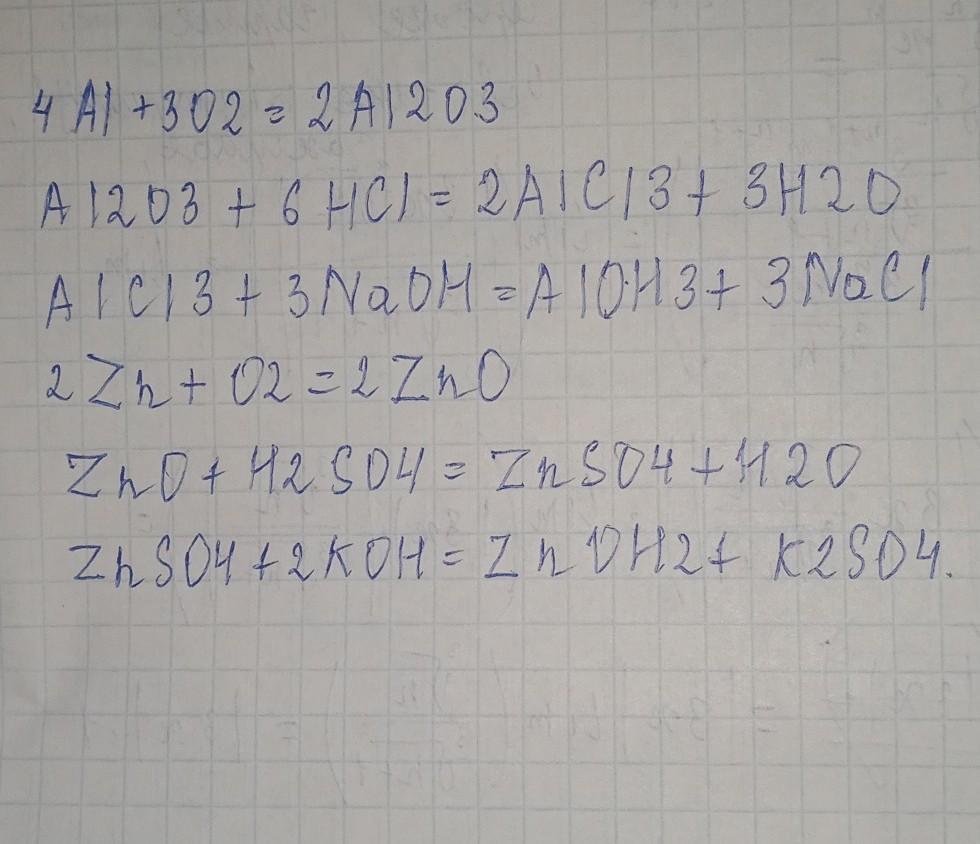 4Al+3O2=2Al2O3
Al2O3+6HCl=2AlCl3+3H2O
AlCl3+3NaOH=AlOH3+3NaCl
2Zn+O2=2ZnO
ZnO+H2SO4=ZnSO4+H2O
ZnSO4+2KOH=ZnOH2+K2SO4.